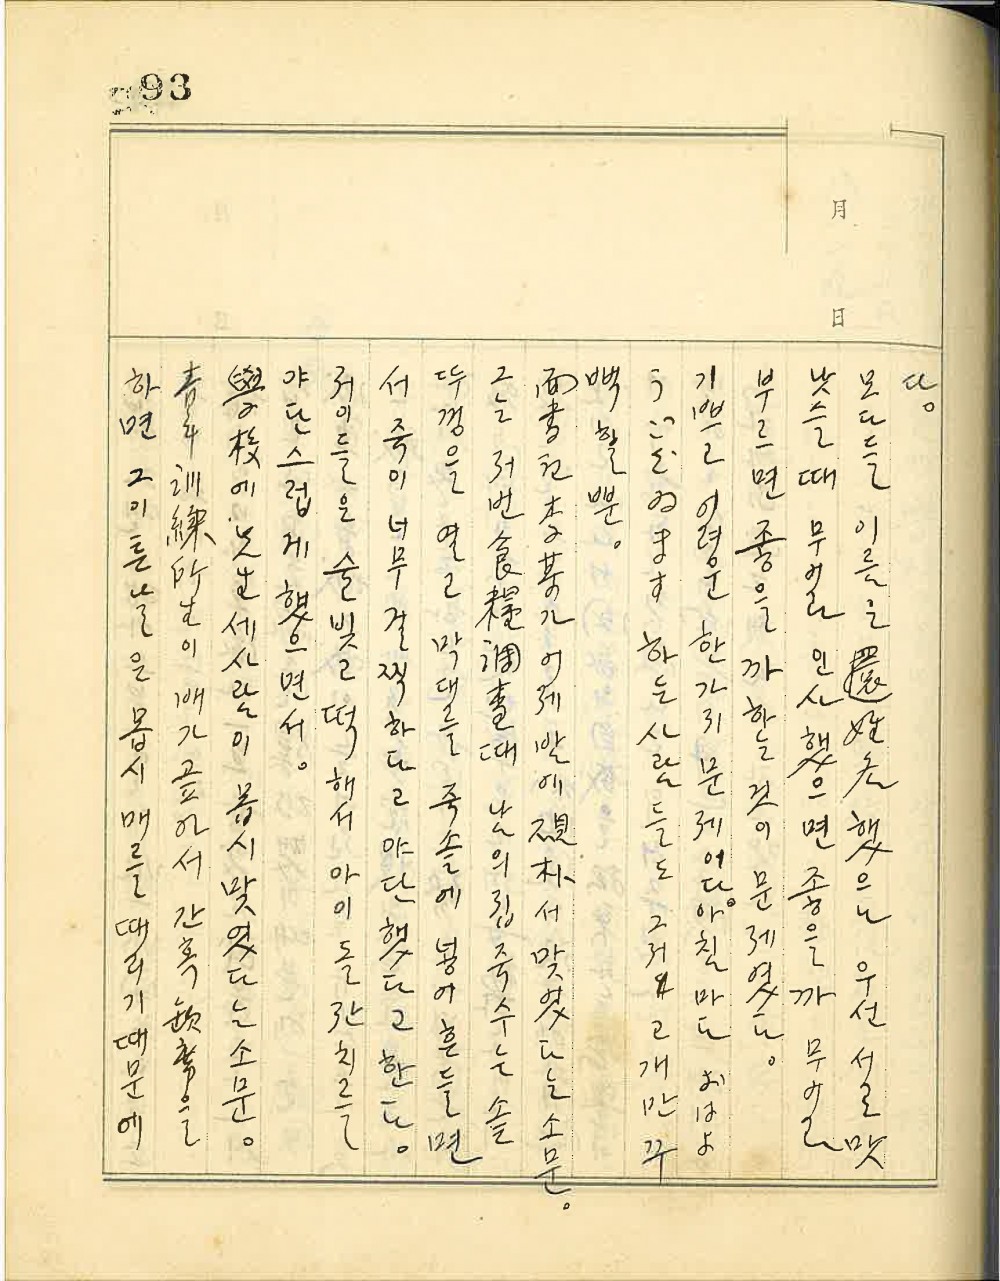 93
月
日
다。
모다들 이름은 還姓名 했으나 우선 서로 맛
낫을 때 무어라 인사 했으면 좋을까 무어라
부르면 좋을까 하는 것이 문제였다。
기쁘고 어려운 한가지 문제어다。아침마다 おはよ
うございます 하든 사람들도 그저 고개만 꾸
뻑 할 뿐。
面書記 李某가 어제 밤에 砚朴서 맞었다는 소문。
그는 저번 食糧調査때 남의 집 죽수는 솔
뚜껑을 열고 막대를 죽솔에 넣어 흔들면
서 죽이 너무 걸찍하다고 야단했다고 한다。
저이들은 술 빚고 떡해서 아이들 잔치를
야단스럽게 했으면서。
學校에 先生 세사람이 몹시 맞었다는 소문。
靑年訓練所生이 배가 곺아서 간혹 缺席을
하면 그 이튼날은 몹시 매를 때리기 때문에